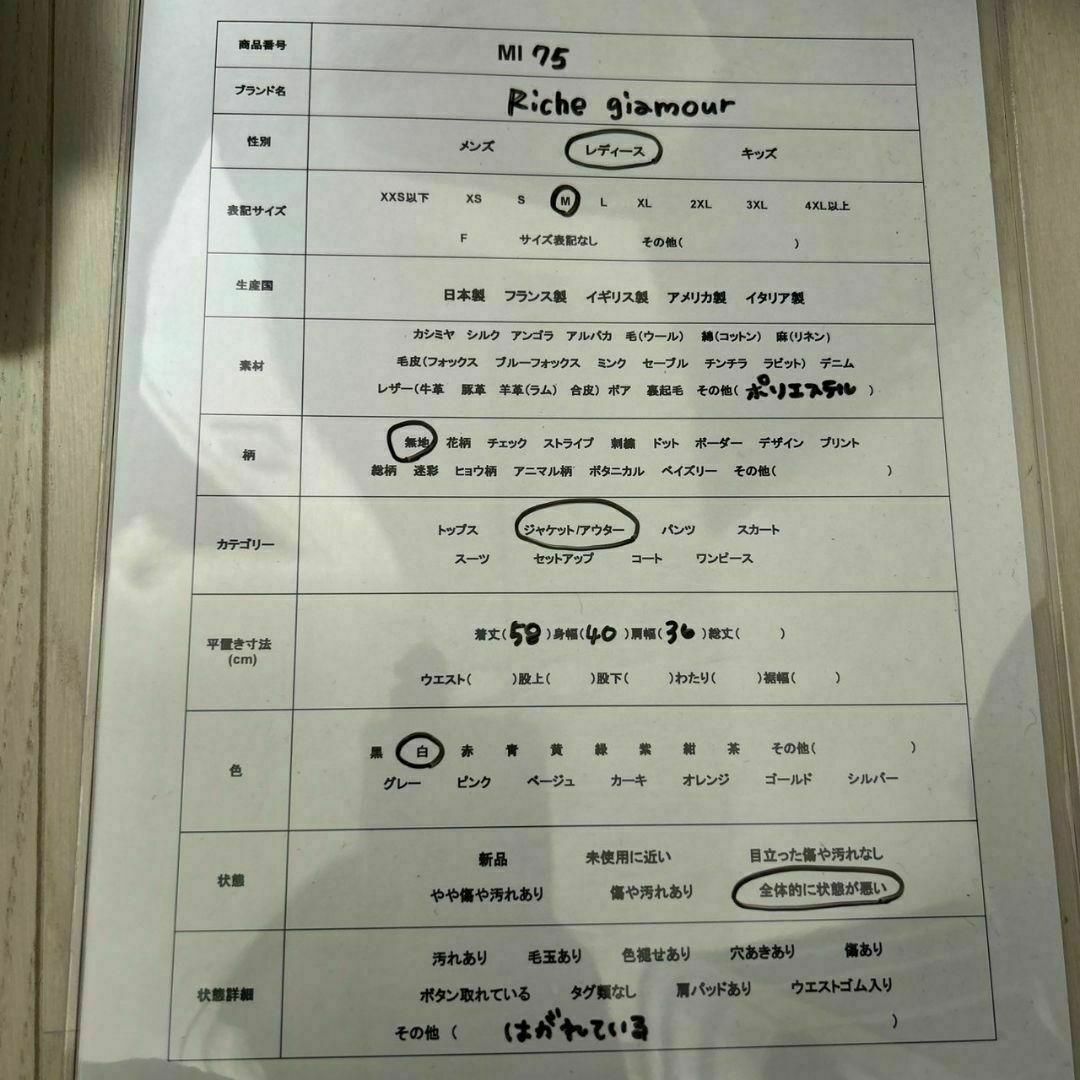 商品番号 MI 75
ブランド名 Riche giamour
性別 メンズ レディース キッズ
表記サイズ XXS以下 XS S M L XL 2XL 3XL 4XL以上
F サイズ表記なし その他( )
生産国 日本製 フランス製 イギリス製 アメリカ製 イタリア製
素材 カシミヤ シルク アンゴラ アルパカ 毛(ウール) 綿(コットン) 麻(リネン)
毛皮(フォックス ブルーフォックス ミンク セーブル チンチラ ラビット) デニム
レザー(牛革 豚革 羊革(ラム) 合皮) ボア 裏起毛 その他( ポリエステル )
柄 無地 花柄 チェック ストライプ 刺繍 ドット ボーダー デザイン プリント
総柄 迷彩 ヒョウ柄 アニマル柄 ボタニカル ペイズリー その他( )
カテゴリー トップス ジャケット/アウター パンツ スカート
スーツ セットアップ コート ワンピース
平置き寸法 着丈(58)身幅(40)肩幅(36)総丈( )
(cm) ウエスト( )股上( )股下( )わたり( )裾幅( )
色 黒 白 赤 青 黄 緑 紫 紺 茶 その他( )
グレー ピンク ベージュ カーキ オレンジ ゴールド シルバー
状態 新品 未使用に近い 目立った傷や汚れなし
やや傷や汚れあり 傷や汚れあり 全体的に状態が悪い
状態詳細 汚れあり 毛玉あり 色褪せあり 穴あきあり 傷あり
ボタン取れている タグ類なし 肩パッドあり ウエストゴム入り
その他 ( はがれている )